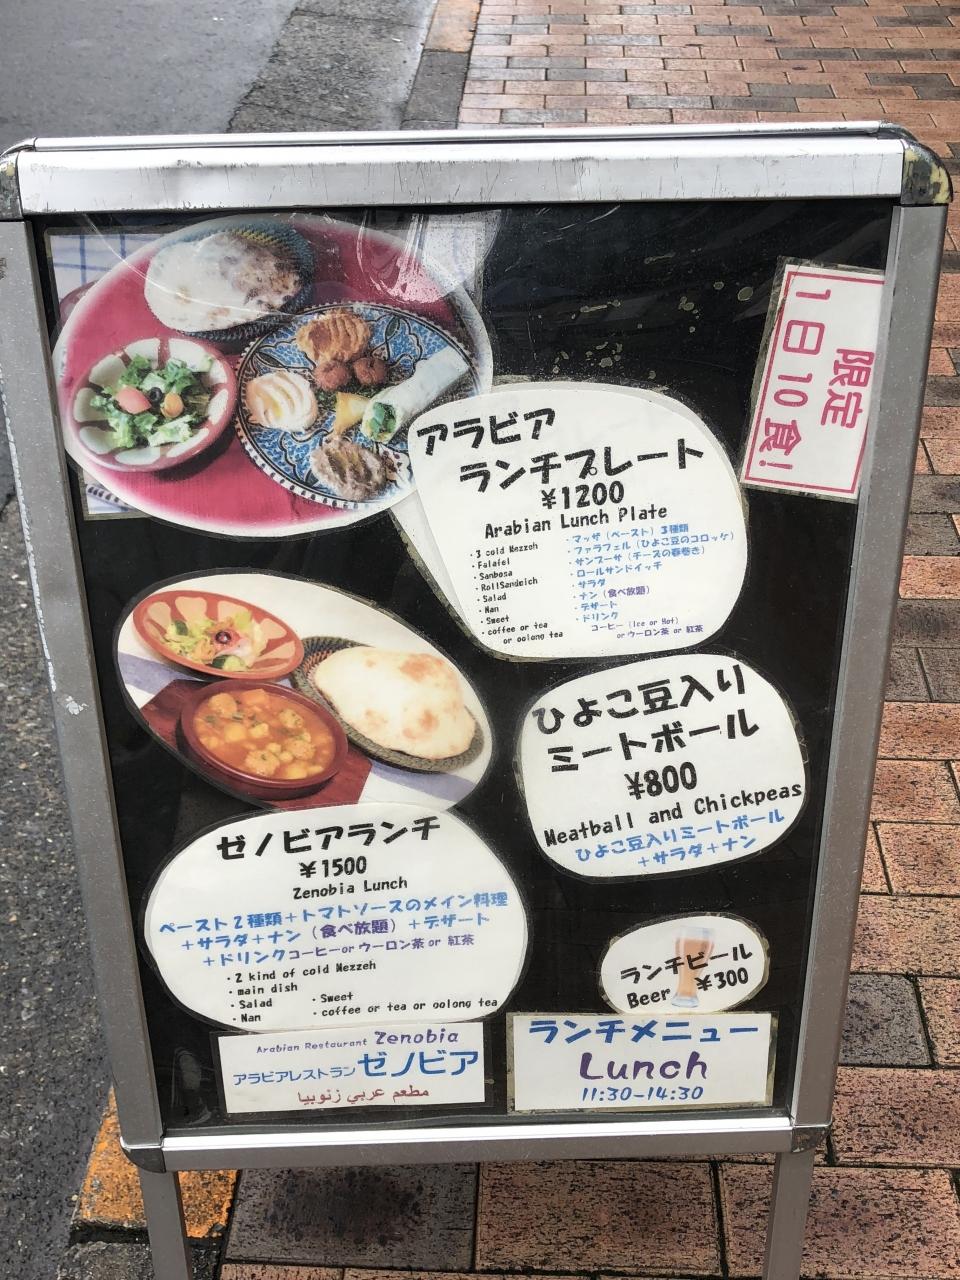 限定
1日10食!
アラビア
ランチプレート
¥1200
Arabian Lunch Plate
・3 cold Mezzeh
・Falafel
・Sanbosa
・RollSandwich
・Salad
・Nan
・Sweet
・coffee or tea
or oolong tea
・マッザ（ペースト）3種類
・ファラフェル（ひよこ豆のコロッケ）
・サンブーサ（チーズの春巻き）
・ロールサンドイッチ
・サラダ
・ナン（食べ放題）
・デザート
・ドリンク
コーヒー（Ice or Hot）
or ウーロン茶 or 紅茶
ひよこ豆入り
ミートボール
¥800
Meatball and Chickpeas
ひよこ豆入りミートボール
+サラダ+ナン
ゼノビアランチ
¥1500
Zenobia Lunch
ペースト2種類+トマトソースのメイン料理
+サラダ+ナン（食べ放題）+デザート
+ドリンクコーヒーorウーロン茶or紅茶
・2 kind of cold Mezzeh
・main dish
・Salad
・Nan
・Sweet
・coffee or tea or oolong tea
ランチビール
Beer ¥300
Arabian Restaurant Zenobia
アラビアレストランゼノビア
مطعم عربي زنوبيا
ランチメニュー
Lunch
11:30-14:30